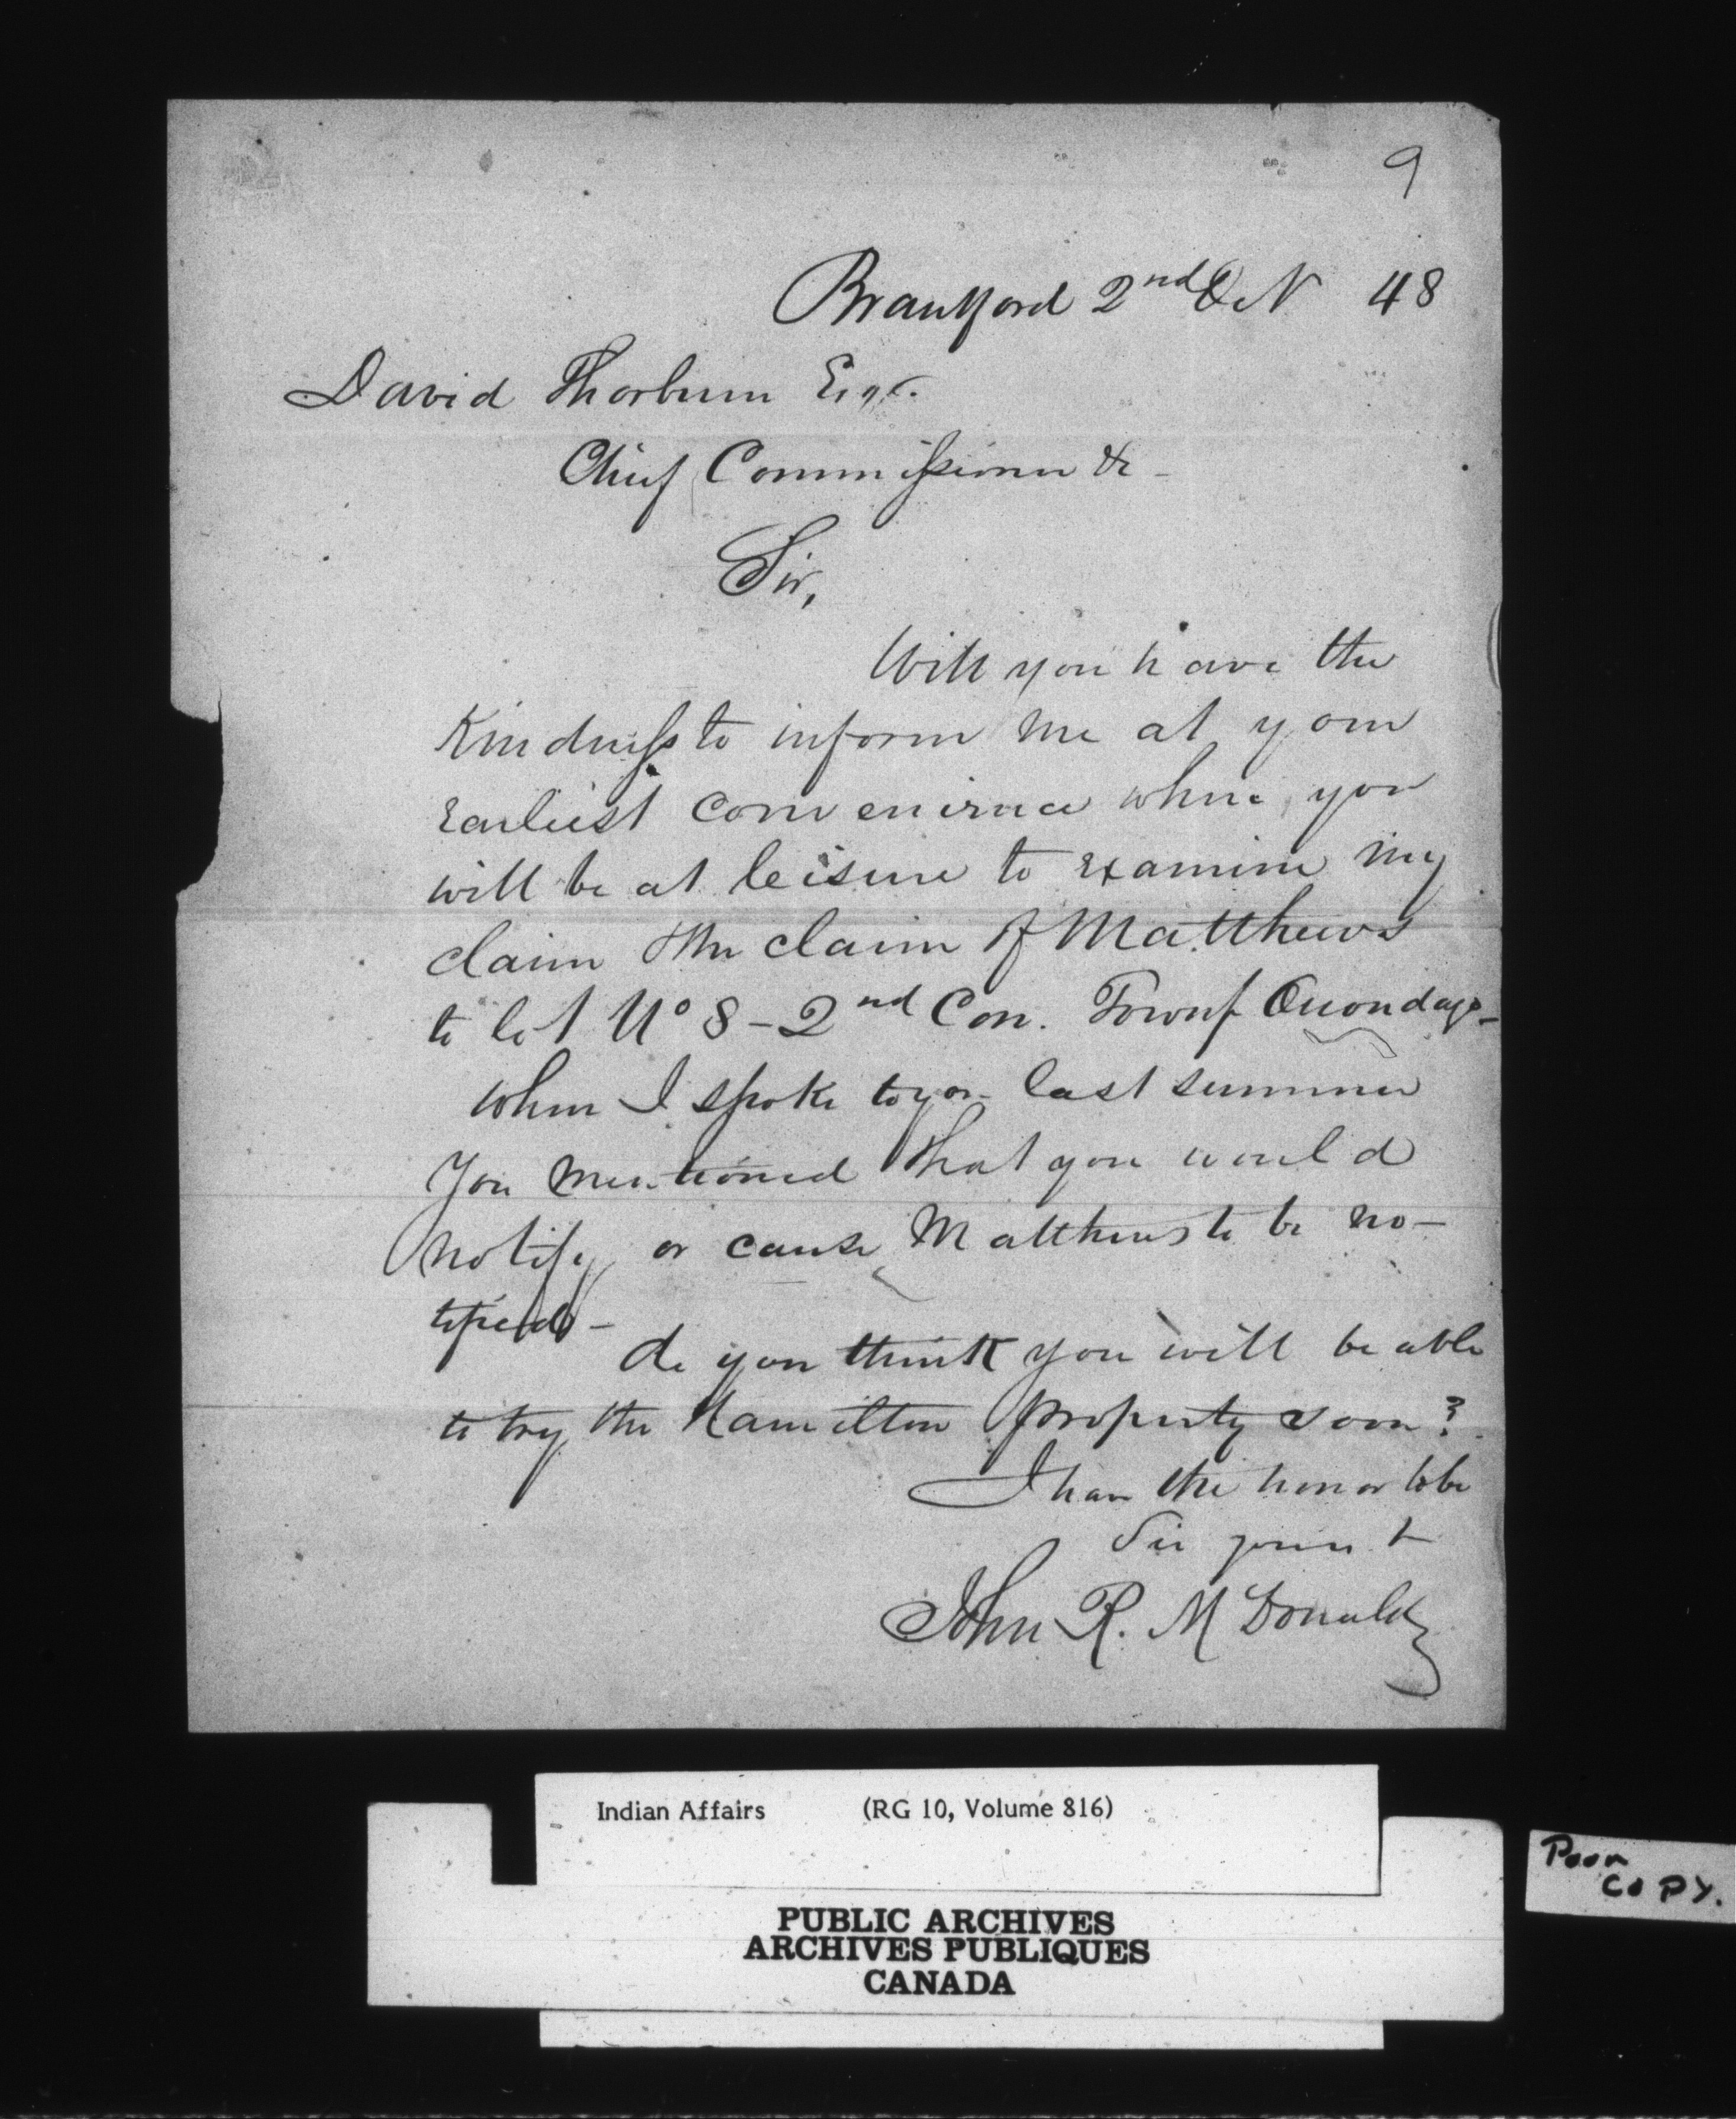 9
Brantford 2nd Oct 48
David Thorburn Esqr.
Chief Commissioner &c -
Sir,
Will you have the
Kindness to inform me at your
Earliest convenience when you
will be at leisure to Examine my
claim & the claim of Matthews
to lot No 8 - 2nd Con. Town of Onondaga -
when I spoke to you last summer
You mentioned that you would
notify or cause Matthews to be no-
tified -
do you think you will be able
to try the Hamilton property soon?
I have the honor to be
Sir yours &
John R. McDonald
Indian Affairs (RG 10, Volume 816)
PUBLIC ARCHIVES
ARCHIVES PUBLIQUES
CANADA
Poor
COPY.